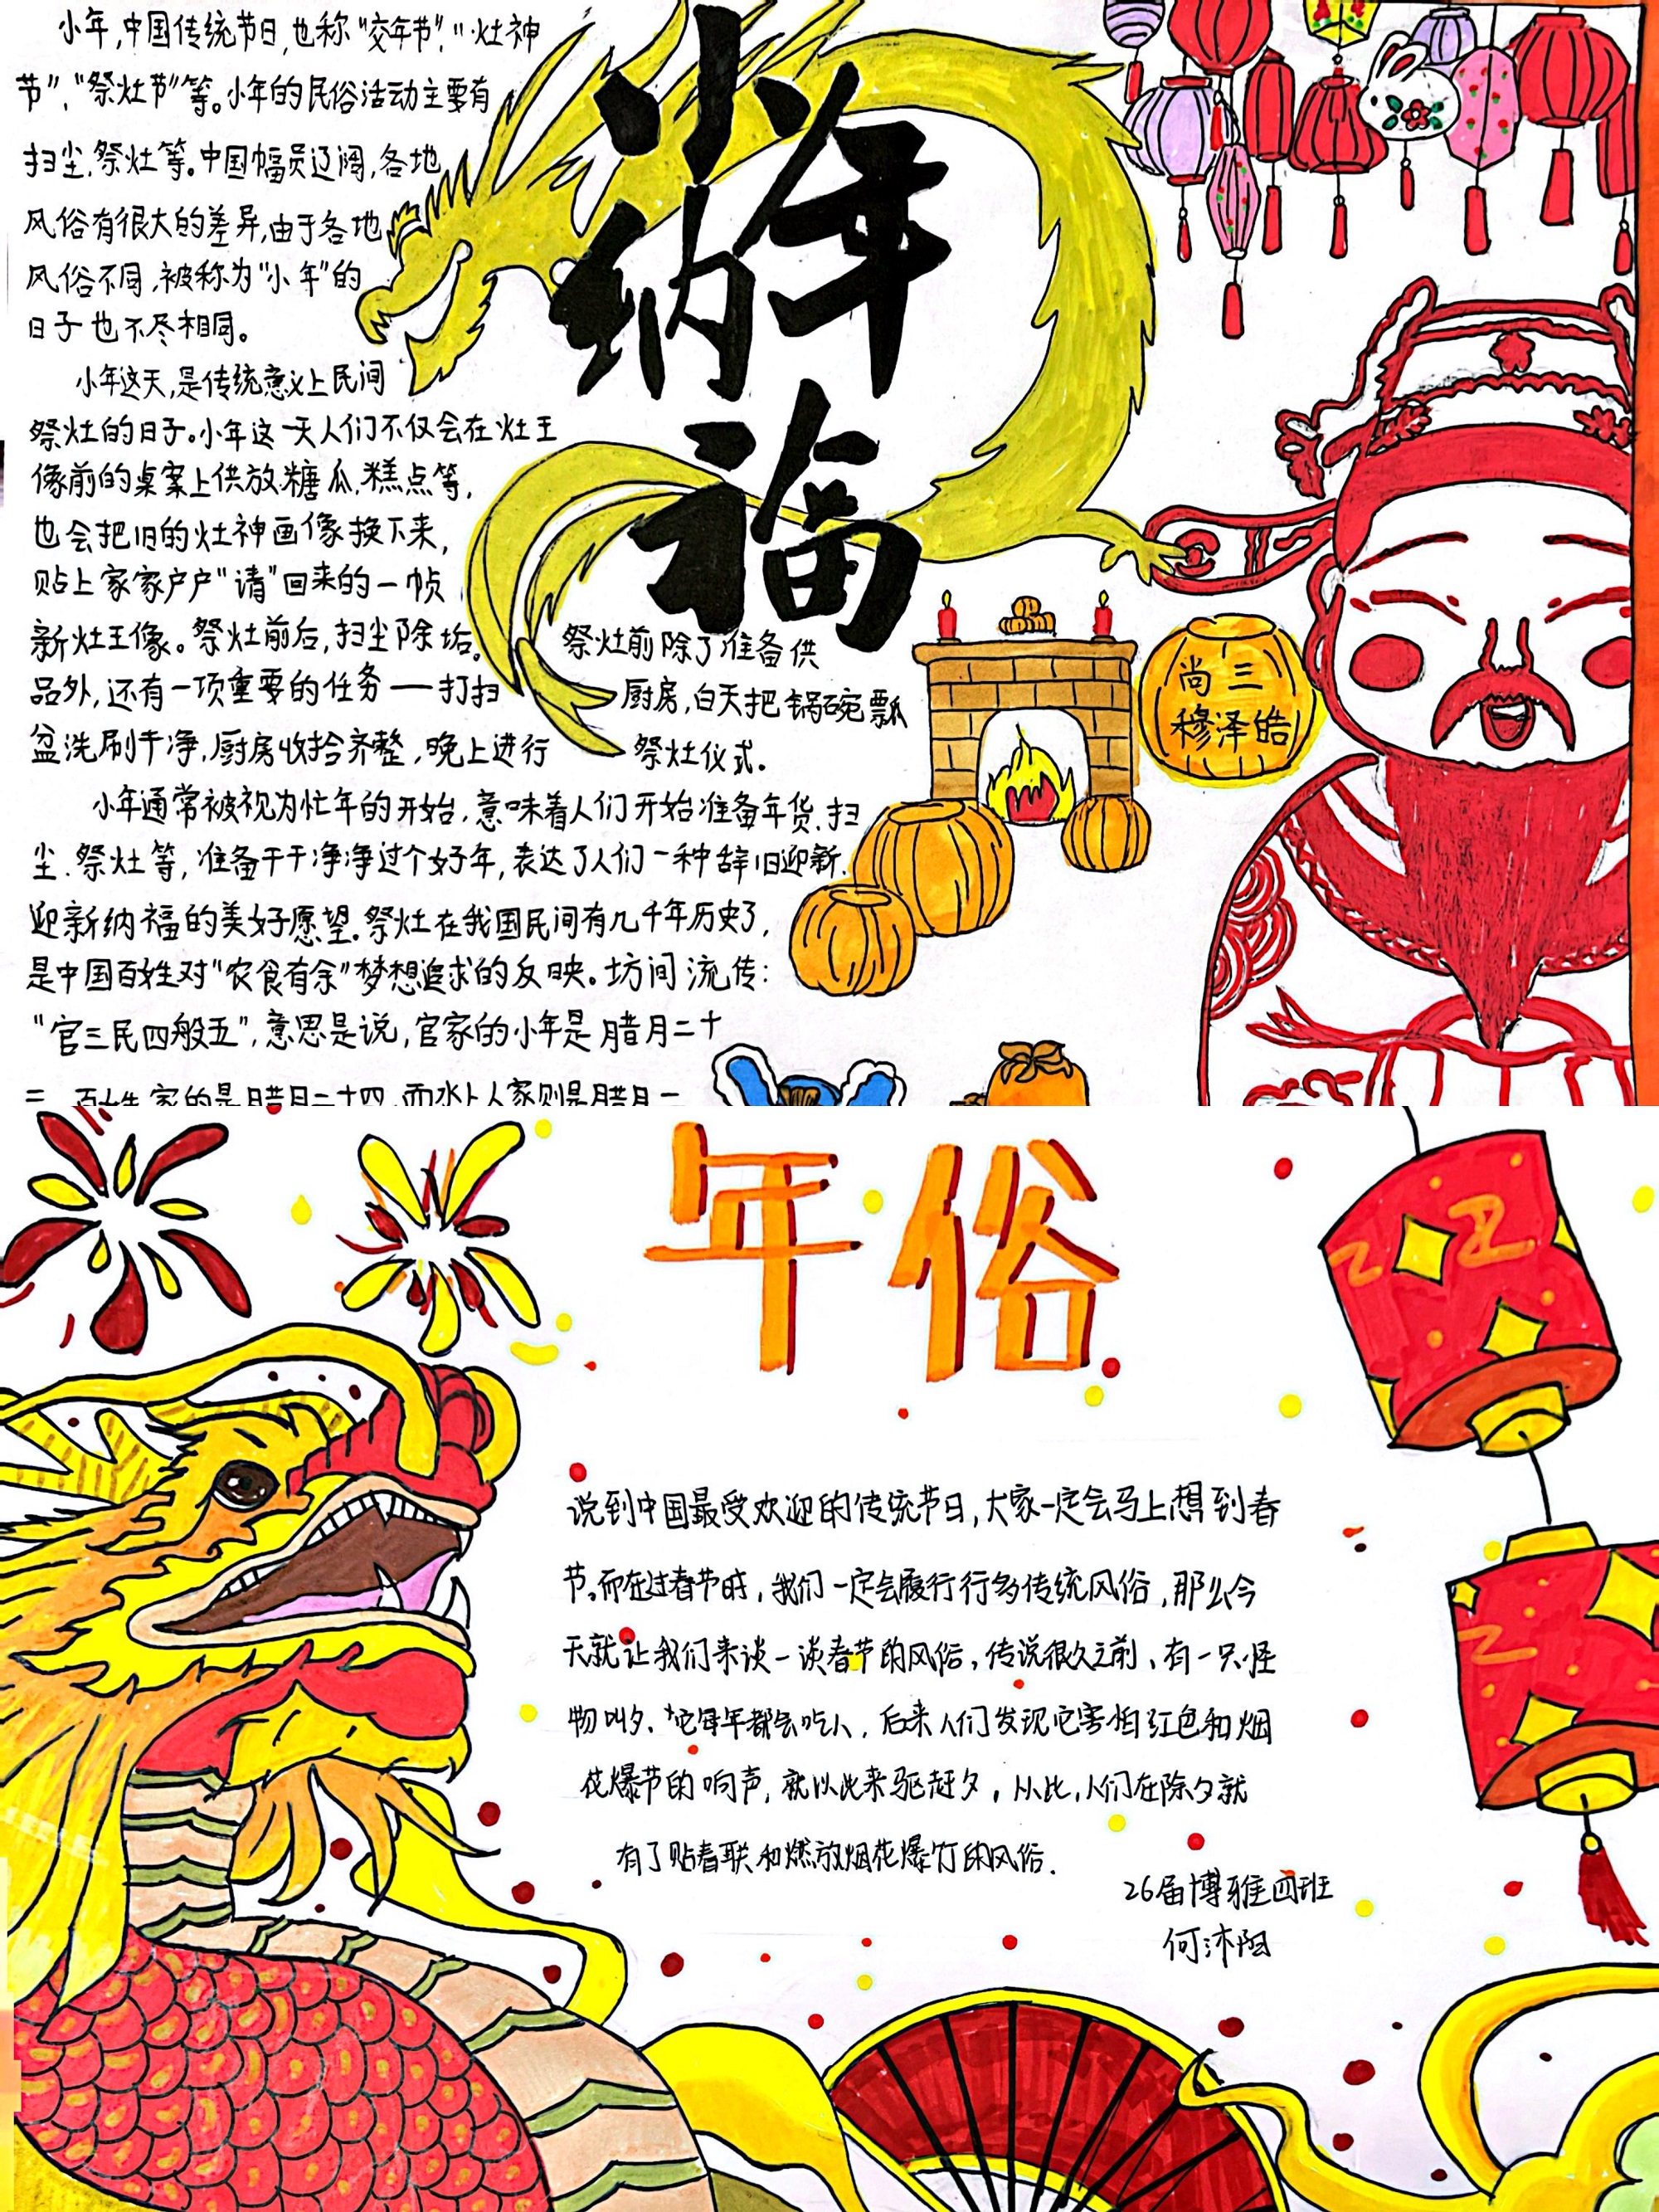 小年纳福
小年,中国传统节日,也称“交年节”,“灶神
节”,“祭灶节”等。小年的民俗活动主要有
扫尘,祭灶等。中国幅员辽阔,各地
风俗有很大的差异,由于各地
风俗不同,被称为“小年”的
日子也不尽相同。
小年这天,是传统意义上民间
祭灶的日子。小年这一天人们不仅会在灶王
像前的桌案上供放糖瓜,糕点等,
也会把旧的灶神画像换下来,
贴上家家户户“请”回来的一帧
新灶王像。祭灶前后,扫尘除垢。 祭灶前除了准备供
品外,还有一项重要的任务——打扫 厨房,白天把锅碗瓢
盆洗刷干净,厨房收拾齐整,晚上进行 祭灶仪式。
小年通常被视为忙年的开始,意味着人们开始准备年货,扫
尘,祭灶等,准备干干净净过个好年,表达了人们一种辞旧迎新,
迎新纳福的美好愿望。祭灶在我国民间有几千年历史了,
是中国百姓对“衣食有余”梦想追求的反映。坊间流传:
“官三民四船五”,意思是说,官家的小年是腊月二十
三,百姓家的是腊月二十四,而水上人家则是腊月二
尚三
穆泽皓
年俗
说到中国最受欢迎的传统节日,大家一定会马上想到春
节。而在过春节时,我们一定会履行行多传统风俗,那么今
天就让我们来谈一谈春节的风俗,传说很久之前,有一只怪
物叫夕,它每年都会吃人,后来人们发现它害怕红色和烟
花爆节的响声,就以此来驱赶夕,从此,人们在除夕就
有了贴春联和燃放烟花爆竹的风俗.
26届博雅四班
何沐阳